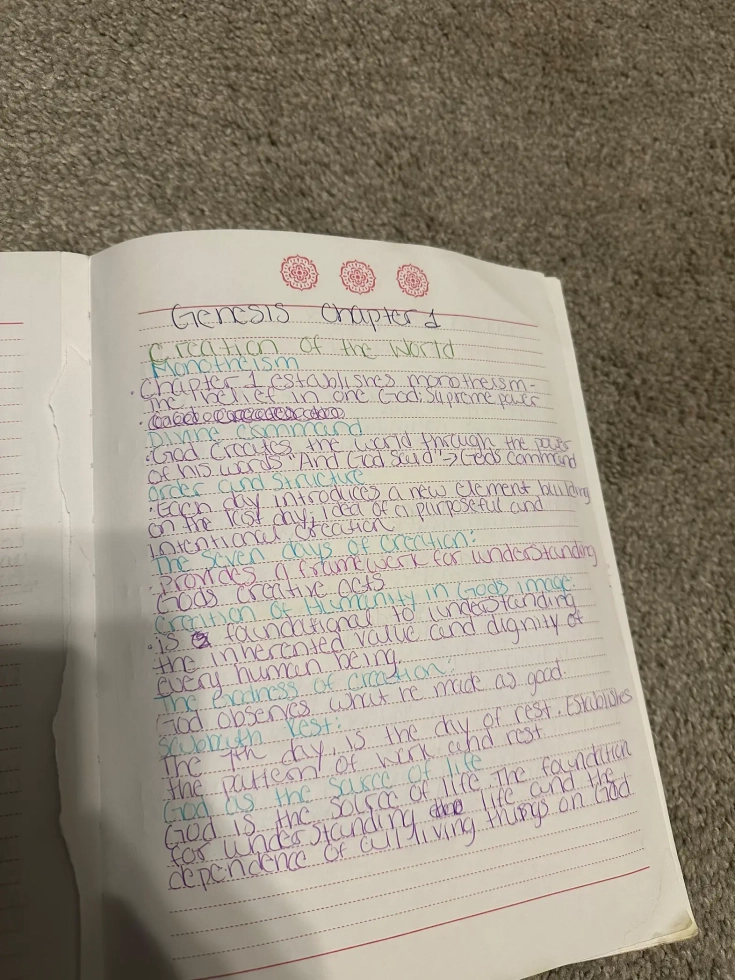 Genesis Chapter 1
Creation of the World
Monotheism
· Chapter 1 establishes monotheism-
the belief in one God, supreme power
·
Divine Command
· God Creates the world through the power
of his words "And God Said" → Gods Command
Order and Structure
· Each day introduces a new element building
on the last day; idea of a purposeful and
intentional creation
The Seven days of creation:
· Provides a framework for understanding
Gods creative acts
Creation of Humanity in Gods image:
· is foundational to understanding
the inherented value and dignity of
every human being.
The goodness of creation:
God observes what he made as good.
Rest:
The 7th day, is the day of rest. Establishes
the pattern of work and rest.
God as the source of life
God is the of life The foundation
for understanding life and the
dependence of all living things on God